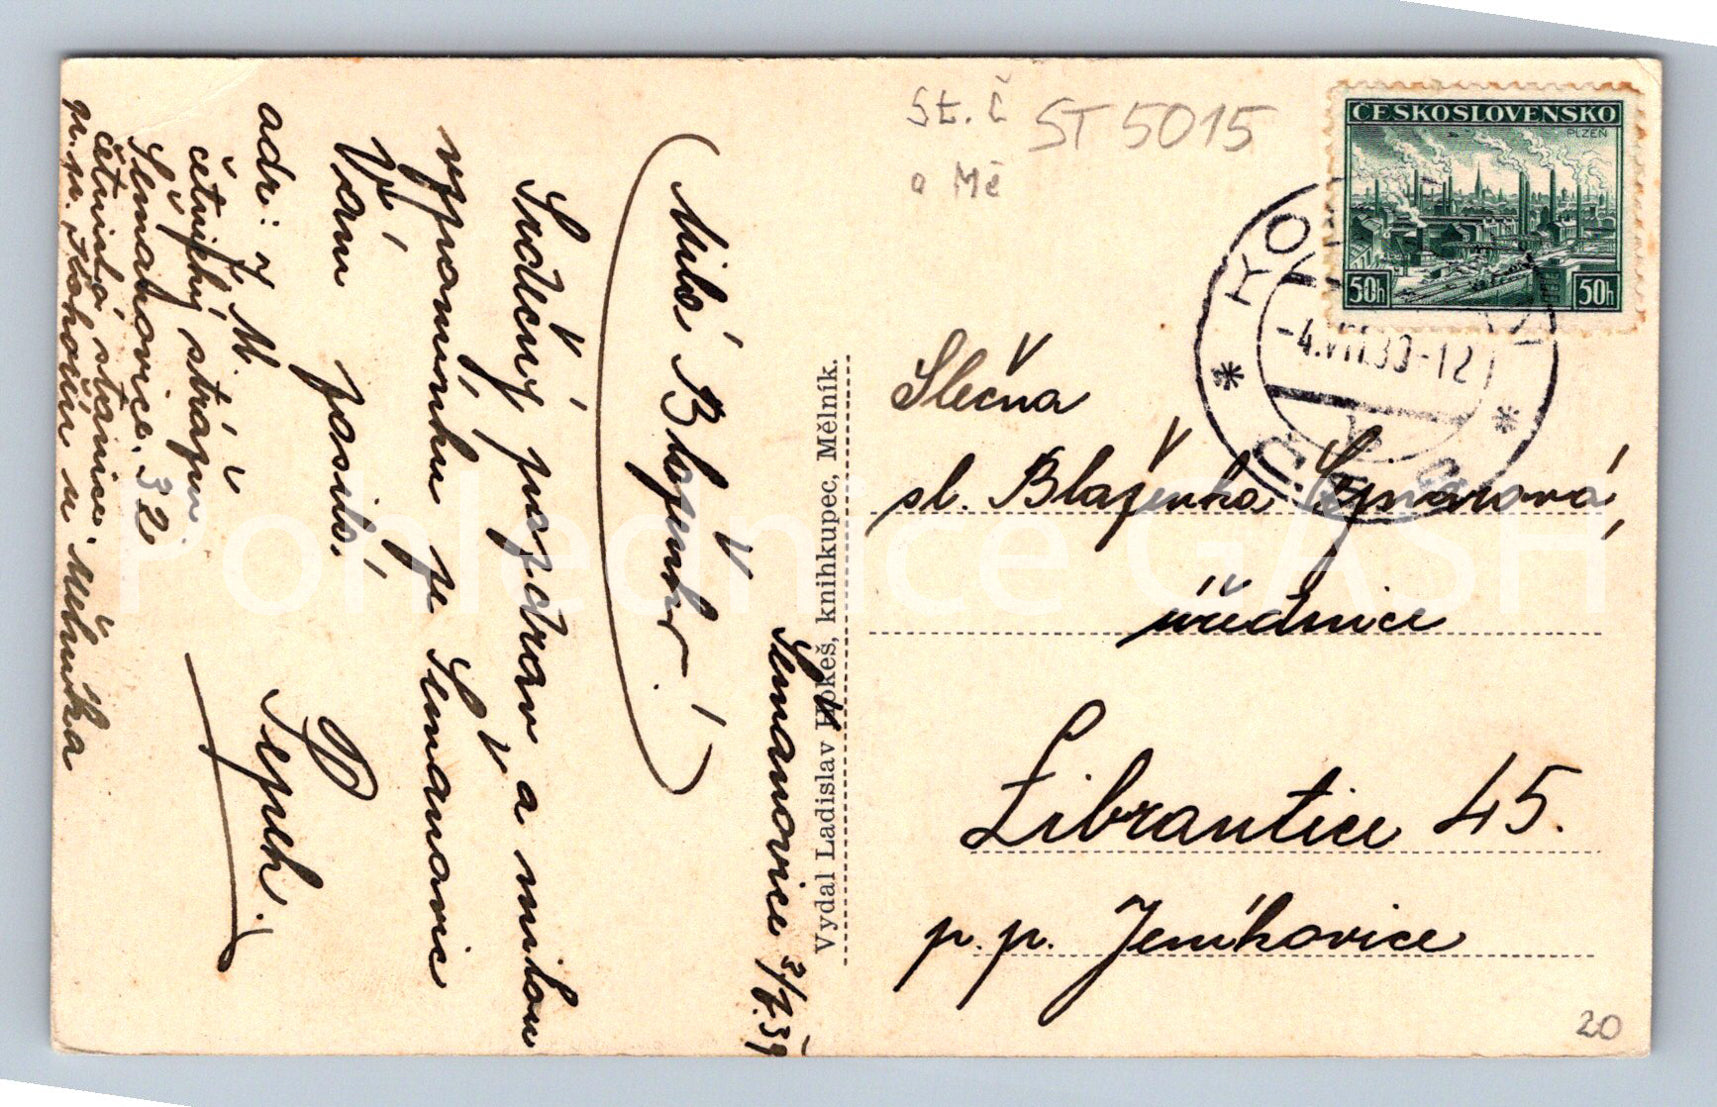 Šemanovice 3/7.39
Milá Blaženko!
Srdečný pozdrav a milou
vzpomínku ze Šemanovic
Vám posílá
Pepík.
adr: J. M.
četnický strážm.
Šemanovice 32
četnická stanice.
u Mělníka
Vydal Ladislav Hokeš, knihkupec, Mělník.
St. č
ST 5015
a Mě
ČESKOSLOVENSKO
PLZEŇ
50h
50h
KO
-4.VII.39-12
Slečna
sl. Blaženka
úřednice
Librantice 45.
p. p. Jeníkovice
20
Pohlednice GASH